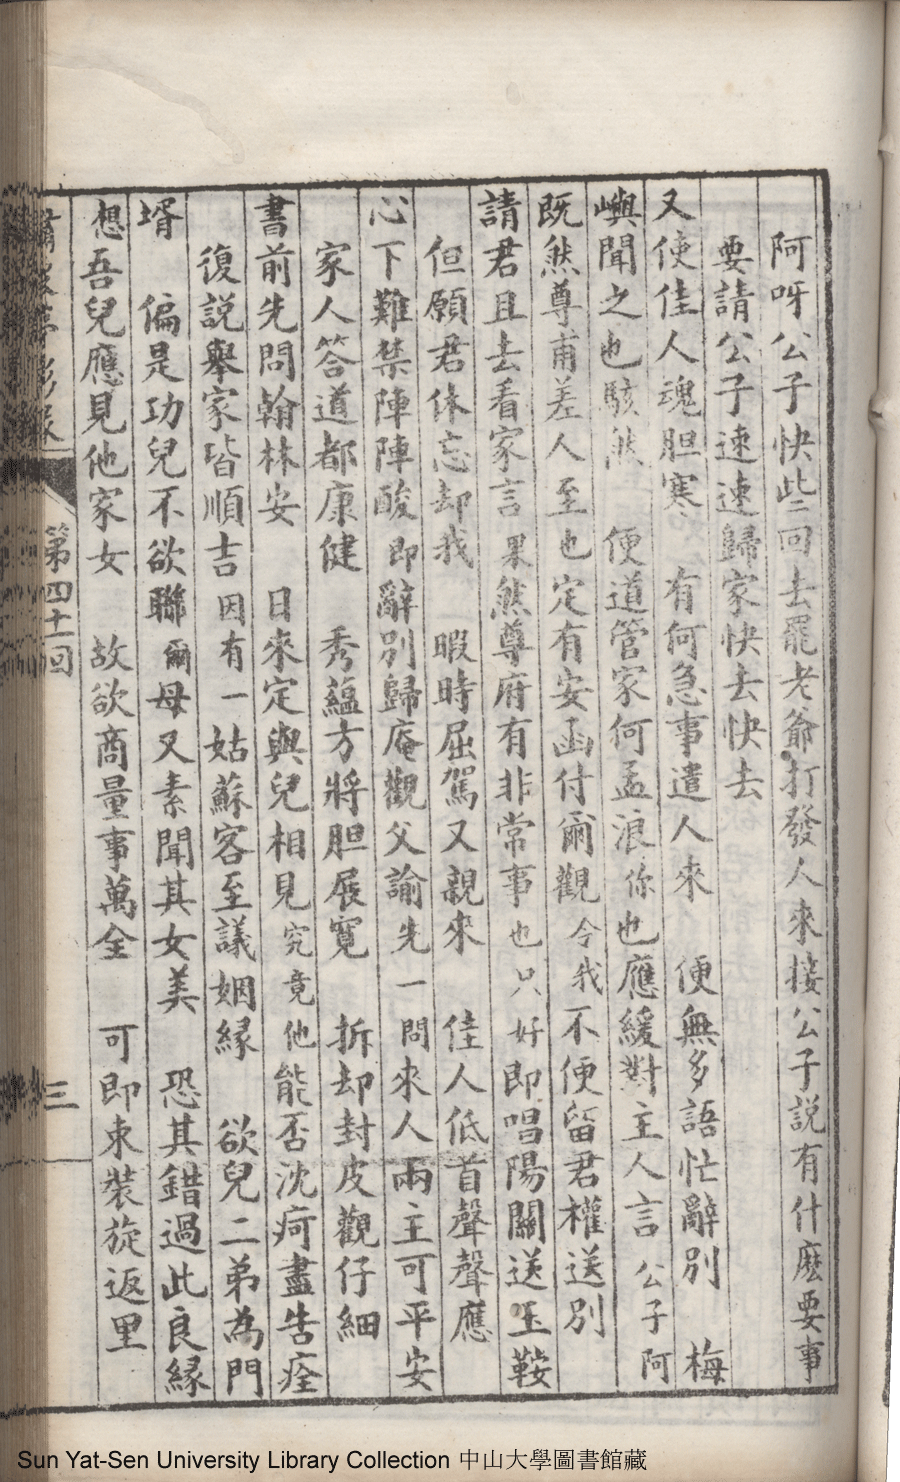 阿呀公子快些回去罷老爺打發人來接公子說有什麽要事
要請公子速速歸家快去快去
又使佳人魂胆寒 有何急事遣人來 便無多語忙辭別 梅
嶼聞之也駭然 便道管家何孟浪你也應緩對主人言 公子阿
既然尊甫差人至也定有安函付爾觀今我不便留君權送別
請君且去看家言果然尊府有非常事也只好即唱陽關送玉鞍
但願君休忘却我 暇時屈駕又親來 佳人低首聲聲應
心下難禁陣陣酸即辭別歸庵觀父諭先一問來人兩主可平安
家人答道都康健 秀藴方將胆展寬 拆却封皮觀仔細
書前先問翰林安 日來定與兒相見究竟他能否沈疴盡告痊
復說舉家皆順吉因有一姑蘇客至議姻緣 欲兒二弟為門
壻 偏是功兒不欲聯爾母又素聞其女美 恐其錯過此良緣
想吾兒應見他家女 故欲商量事萬全 可即束裝旋返里
第四十一回
三
Sun Yat-Sen University Library Collection 中山大學圖書館藏